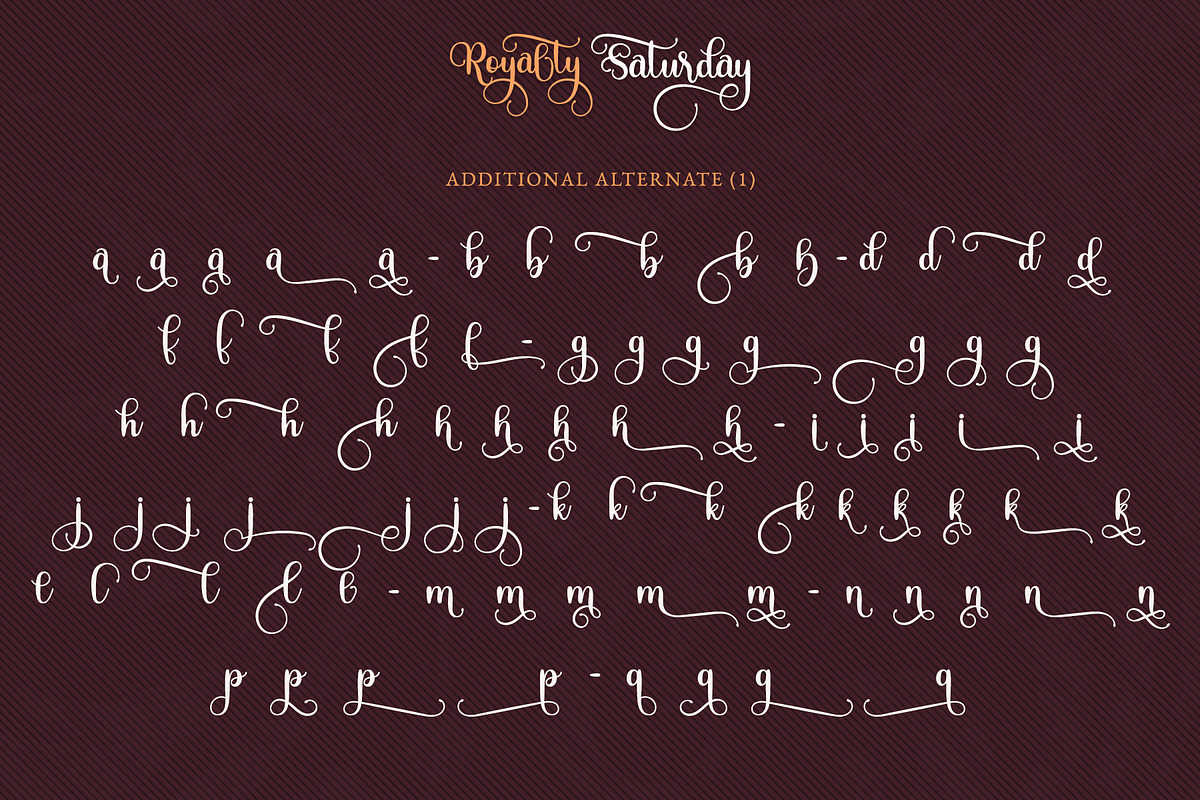 Royalty Saturday
ADDITIONAL ALTERNATE (1)
a a a a a - b b b b b - d d d d
f f f f f - g g g g g g g
h h h h h h h h h - i i i i i
j j j j j j j - k k k k k k k k k
l l l l l - m m m m m - n n n n n
p p p p - q q q q